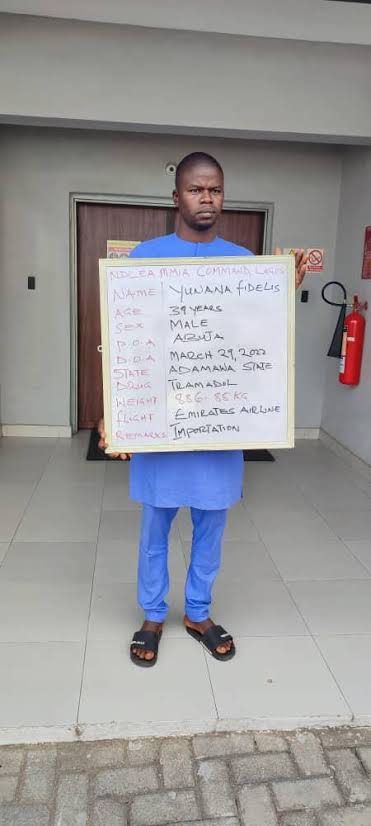 NDLEA MMIA COMMAND, LAGOS
NAME YUNANA FIDELIS
AGE 39 YEARS
SEX MALE
P.O.A ABUJA
D.O.A MARCH 29, 2022
STATE ADAMAWA STATE
DRUG TRAMADOL
WEIGHT 886.85KG
FLIGHT EMIRATES AIRLINE
REMARKS IMPORTATION